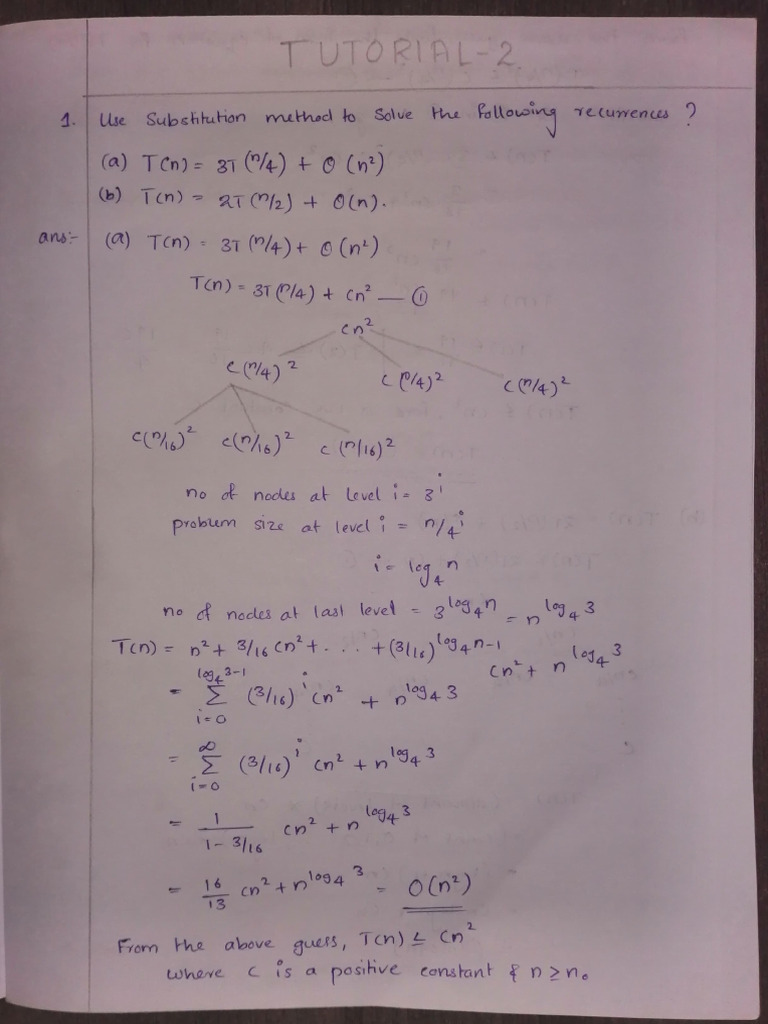 TUTORIAL-2
1. Use Substitution method to solve the following recurrences ?
(a) T(n) = 3T(n/4) + O(n²)
(b) T(n) = 2T(n/2) + O(n).
ans:- (a) T(n) = 3T(n/4) + O(n²)
T(n) = 3T(n/4) + cn² — ①
cn²
c(n/4)² c(n/4)² c(n/4)²
c(n/16)² c(n/16)² c(n/16)²
no of nodes at level i = 3^i
problem size at level i = n/4^i
i = log₄n
no of nodes at last level = 3^log₄n = n^log₄3
T(n) = n² + 3/16 cn² + . . . + (3/16)^log₄n-1 cn² + n^log₄3
= Σ_{i=0}^{log₄3-1} (3/16)^i cn² + n^log₄3
= Σ_{i=0}^{∞} (3/16)^i cn² + n^log₄3
= 1/(1-3/16) cn² + n^log₄3
= 16/13 cn² + n^log₄3 = O(n²)
From the above guess, T(n) ≤ cn²
where c is a positive constant & n ≥ n₀